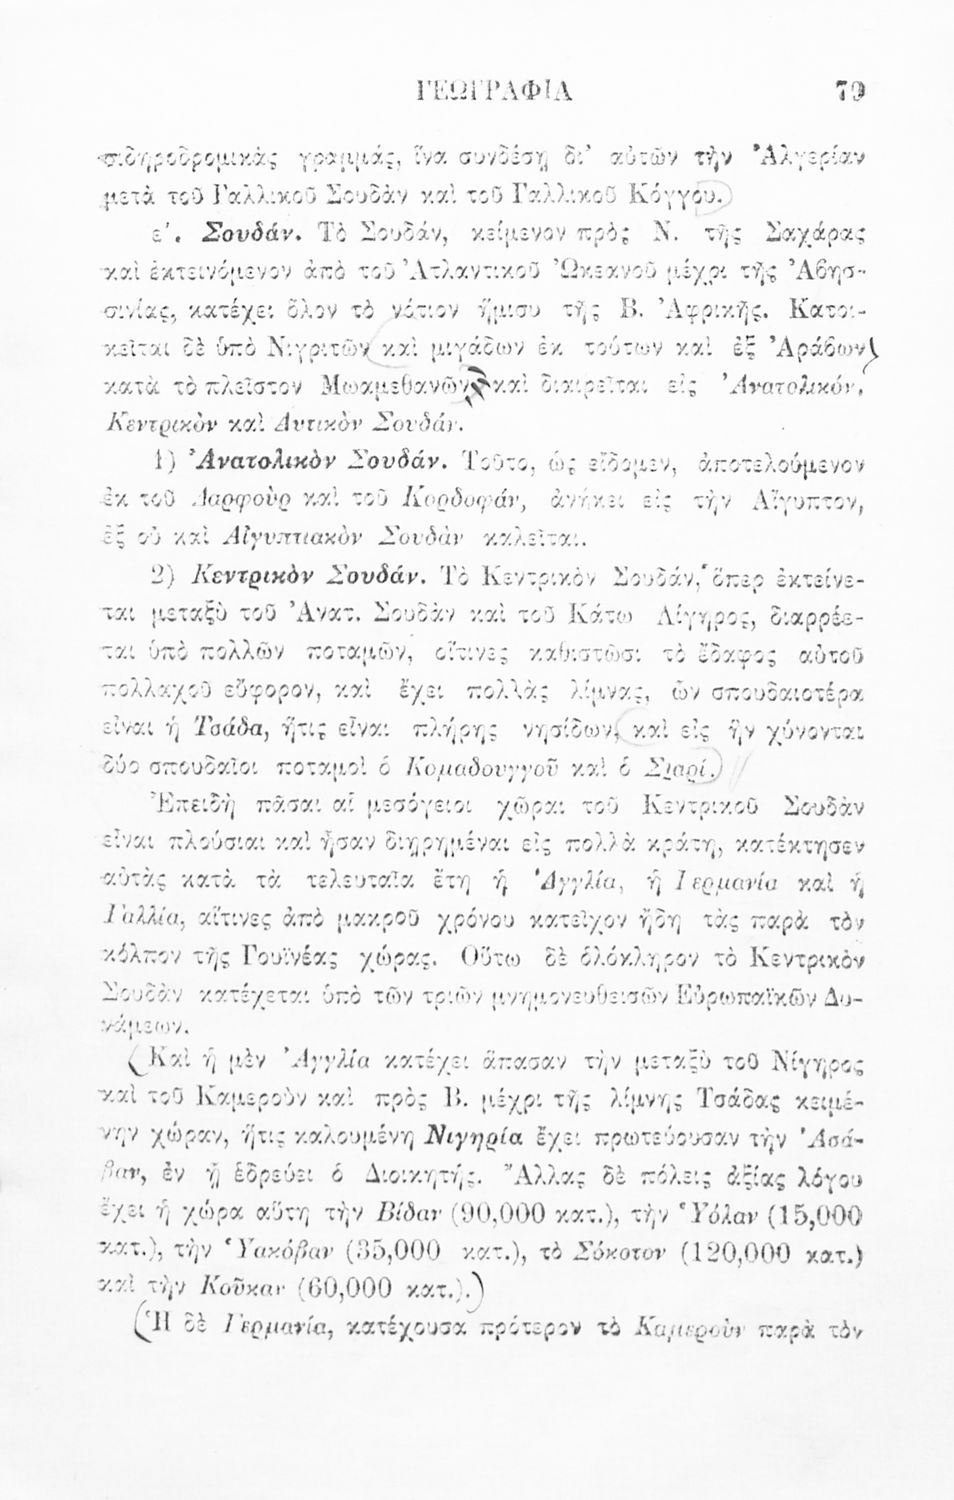 ΓΕΩΓΡΑΦΙΑ 79
σιδηροδρομικὰς γραμμάς, ἵνα συνδέσῃ δι' αὐτῶν τὴν Ἀλγερίαν
μετὰ τοῦ Γαλλικοῦ Σουδὰν καὶ τοῦ Γαλλικοῦ Κόγγου.
ε'. Σουδάν. Τὸ Σουδάν, κείμενον πρὸς Ν. τῆς Σαχάρας
καὶ ἐκτεινόμενον ἀπὸ τοῦ Ἀτλαντικοῦ Ὠκεανοῦ μέχρι τῆς Ἀβησ-
σινίας, κατέχει ὅλον τὸ νότιον ἥμισυ τῆς Β. Ἀφρικῆς. Κατοι-
κεῖται δὲ ὑπὸ Νιγριτῶν καὶ μιγάδων ἐκ τούτων καὶ ἐξ Ἀράβων
κατὰ τὸ πλεῖστον Μωαμεθανῶν, καὶ διαιρεῖται εἰς Ἀνατολικόν,
Κεντρικὸν καὶ Δυτικὸν Σουδάν.
1) Ἀνατολικὸν Σουδάν. Τοῦτο, ὡς εἴδομεν, ἀποτελούμενον
ἐκ τοῦ Δαρφοὺρ καὶ τοῦ Κορδοφάν, ἀνήκει εἰς τὴν Αἴγυπτον,
ἐξ οὗ καὶ Αἰγυπτιακὸν Σουδὰν καλεῖται.
2) Κεντρικὸν Σουδάν. Τὸ Κεντρικὸν Σουδάν, ὅπερ ἐκτείνε-
ται μεταξὺ τοῦ Ἀνατ. Σουδὰν καὶ τοῦ Κάτω Λίγηρος, διαρρέε-
ται ὑπὸ πολλῶν ποταμῶν, οἵτινες καθιστῶσι τὸ ἔδαφος αὐτοῦ
πολλαχοῦ εὔφορον, καὶ ἔχει πολλὰς λίμνας, ὧν σπουδαιοτέρα
εἶναι ἡ Τσάδα, ἥτις εἶναι πλήρης νησίδων, καὶ εἰς ἣν χύνονται
δύο σπουδαῖοι ποταμοὶ ὁ Κομαδουγγοῦ καὶ ὁ Σιαρί.
Ἐπειδὴ πᾶσαι αἱ μεσόγειοι χῶραι τοῦ Κεντρικοῦ Σουδὰν
εἶναι πλούσιαι καὶ ἦσαν διῃρημέναι εἰς πολλὰ κράτη, κατέκτησεν
αὐτὰς κατὰ τὰ τελευταῖα ἔτη ἡ Ἀγγλία, ἡ Γερμανία καὶ ἡ
Γαλλία, αἵτινες ἀπὸ μακροῦ χρόνου κατεῖχον ἤδη τὰς παρὰ τὸν
κόλπον τῆς Γουϊνέας χώρας. Οὕτω δὲ ὁλόκληρον τὸ Κεντρικὸν
Σουδὰν κατέχεται ὑπὸ τῶν τριῶν μνημονευθεισῶν Εὐρωπαϊκῶν Δυ-
νάμεων.
Καὶ ἡ μὲν Ἀγγλία κατέχει ἅπασαν τὴν μεταξὺ τοῦ Νίγηρος
καὶ τοῦ Καμεροὺν καὶ πρὸς Β. μέχρι τῆς λίμνης Τσάδας κειμέ-
νην χώραν, ἥτις καλουμένη Νιγηρία ἔχει πρωτεύουσαν τὴν Ἀσά-
βαν, ἐν ᾗ ἑδρεύει ὁ Διοικητής. Ἄλλας δὲ πόλεις ἀξίας λόγου
ἔχει ἡ χώρα αὕτη τὴν Βίδαν (90,000 κατ.), τὴν Ὑόλαν (15,000
κατ.), τὴν Ὑακόβαν (35,000 κατ.), τὸ Σόκοτον (120,000 κατ.)
καὶ τὴν Κοῦκαν (60,000 κατ.).
Ἡ δὲ Γερμανία, κατέχουσα πρότερον τὸ Καμεροὺν παρὰ τὸν